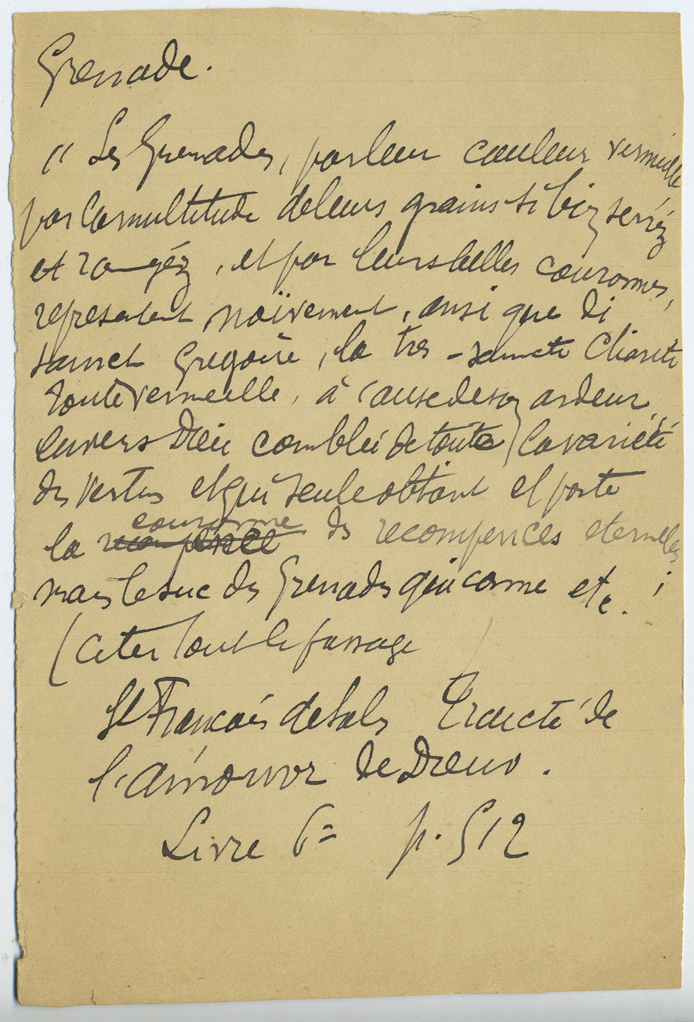 Grenade.
" Les Grenades, par leur couleur vermeille
par la multitude de leurs grains si bien serréz
et rangéz, et par leurs belles couronnes,
representent naïvement, ainsi que dit
sainct Gregoire, la tres-saincte Charité
toute vermeille, à cause de son ardeur
envers Dieu comblée de toute la variété
des vertus et qui seule obtient et porte
la couronne des recompences eternelles
mais le suc des Grenades qui come etc. !
(citer tout le passage
St Francois de Sales Traicté de
l'Amour de Dieu.
Livre 6= p. 512